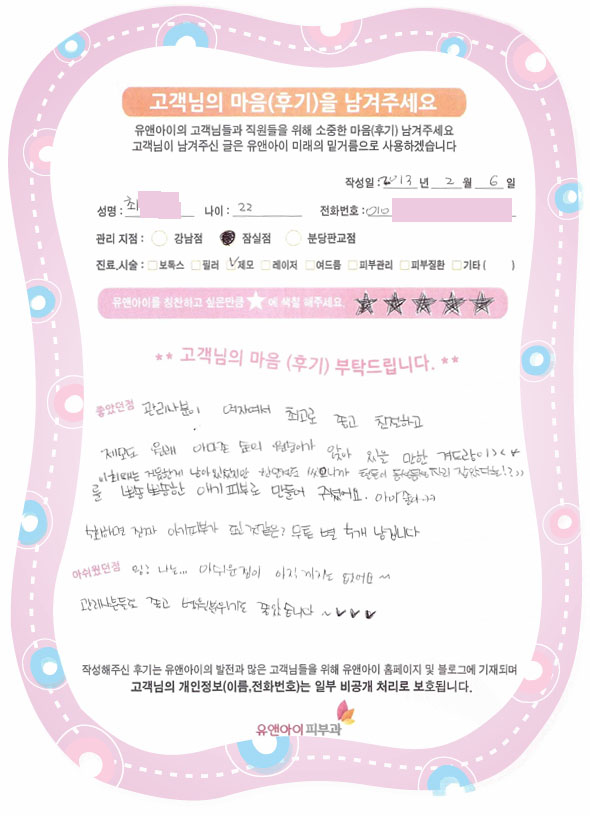 고객님의 마음(후기)을 남겨주세요
유앤아이의 고객님들과 직원들을 위해 소중한 마음(후기) 남겨주세요
고객님이 남겨주신 글은 유앤아이 미래의 밑거름으로 사용하겠습니다
작성일 : 2013 년 2 월 6 일
성명 : 최 나이 : 22 전화번호 : 010
관리 지점 : 강남점 잠실점 분당판교점
진료.시술 : 보톡스 필러 제모 레이저 여드름 피부관리 피부질환 기타 ( )
유앤아이를 칭찬하고 싶은만큼 ★에 색칠 해주세요.
** 고객님의 마음 (후기) 부탁드립니다. **
좋았던점 관리사분이 여자여서 최고로 좋고 친절하고
제모도 원래 아마존 숲의 앉아 있을 만한 겨드랑이><
를 뽀송뽀송한 애기 피부로 만들어 주셨어요.
진짜 아기피부가 된 것같은? 무튼 별 5개 남깁니다
아쉬웠던점 음? 나는... 아쉬운점이 아직까지는 없어요~
관리사분들도 좋고 병원분위기도 좋았습니다 ~
작성해주신 후기는 유앤아이의 발전과 많은 고객님들을 위해 유앤아이 홈페이지 및 블로그에 기재되며
고객님의 개인정보(이름,전화번호)는 일부 비공개 처리로 보호됩니다.
유앤아이피부과